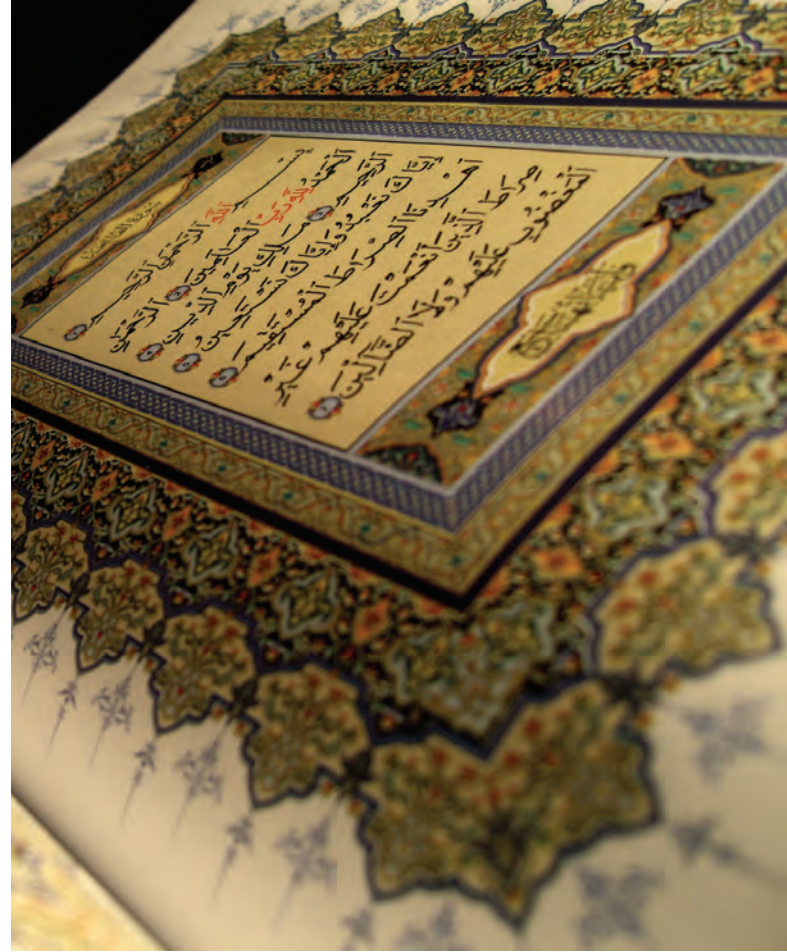 سُورَةُ الفَاتِحَةِ
بِسْمِ ٱللَّهِ ٱلرَّحْمَٰنِ ٱلرَّحِيمِ
ٱلْحَمْدُ لِلَّهِ رَبِّ ٱلْعَٰلَمِينَ ٱلرَّحْمَٰنِ
ٱلرَّحِيمِ مَٰلِكِ يَوْمِ ٱلدِّينِ
إِيَّاكَ نَعْبُدُ وَإِيَّاكَ نَسْتَعِينُ
ٱهْدِنَا ٱلصِّرَٰطَ ٱلْمُسْتَقِيمَ
صِرَٰطَ ٱلَّذِينَ أَنْعَمْتَ عَلَيْهِمْ غَيْرِ
ٱلْمَغْضُوبِ عَلَيْهِمْ وَلَا ٱلضَّآلِّينَ